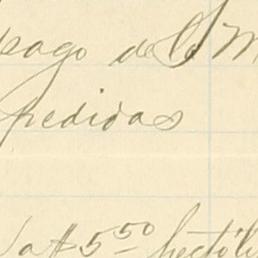 pago de
pedidas
a $5.50 hectóli